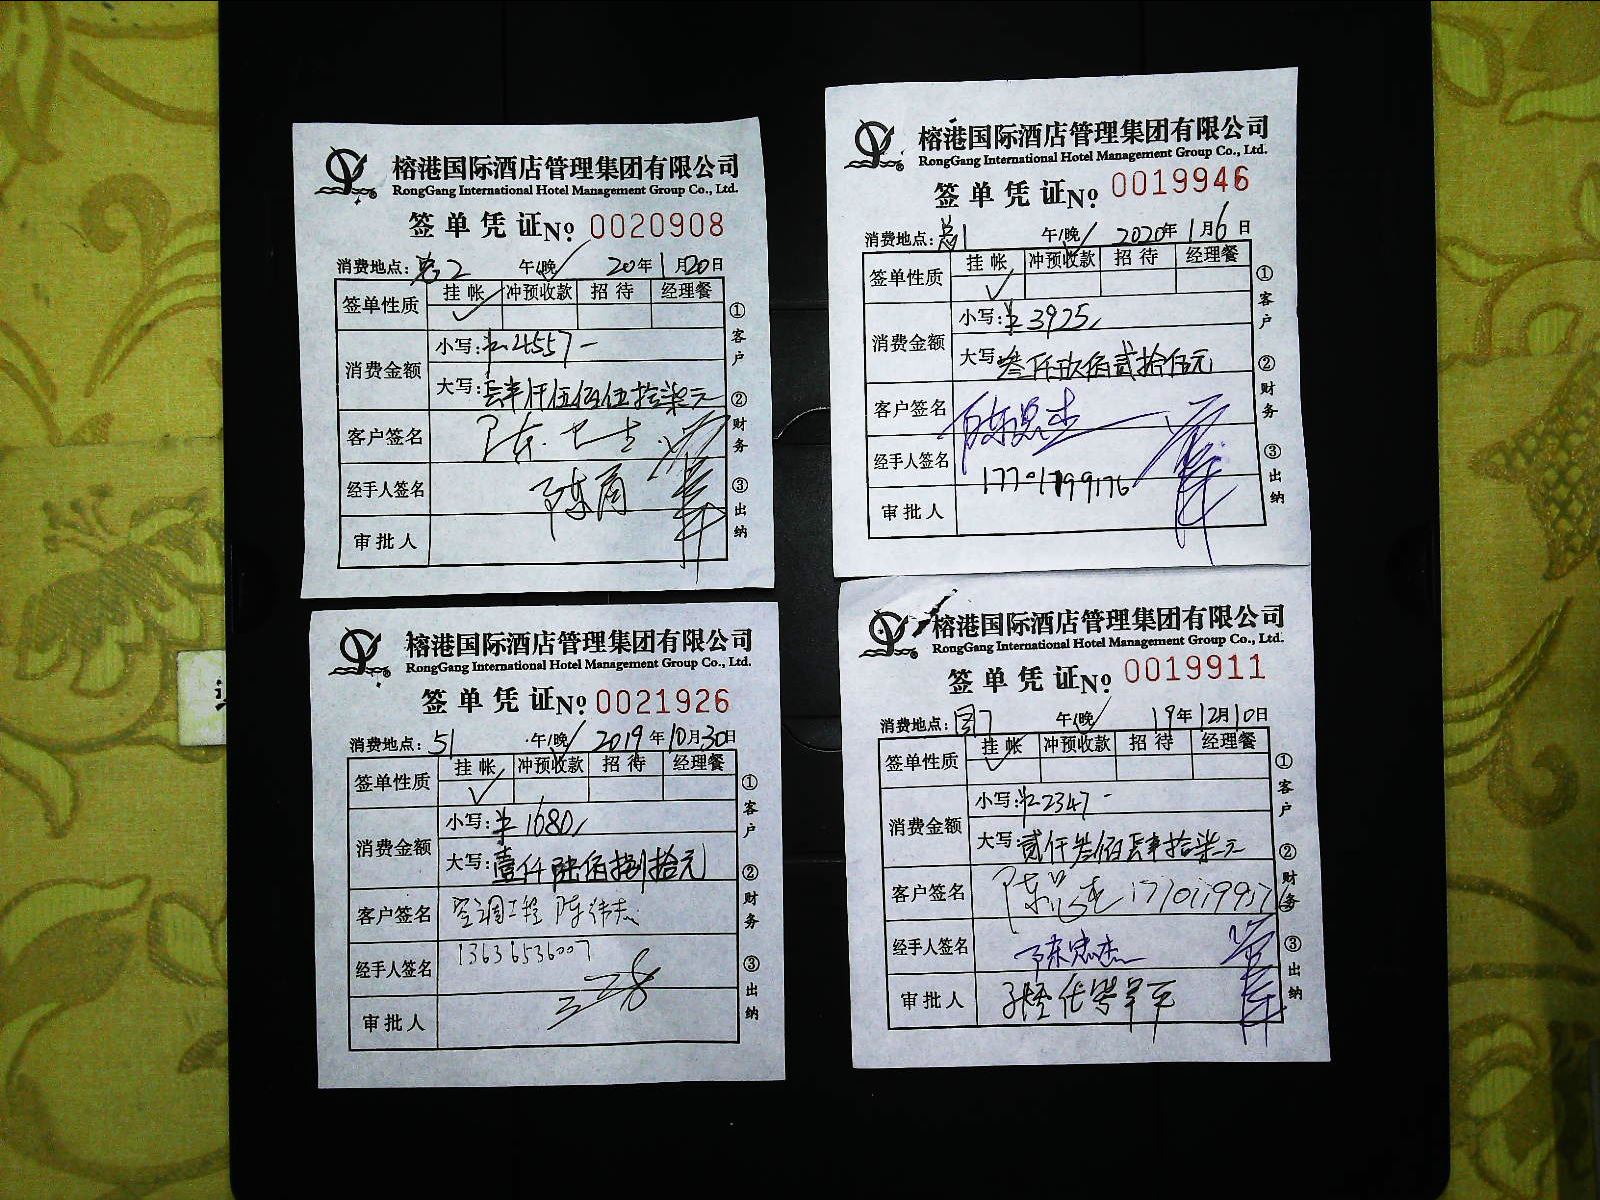 榕港国际酒店管理集团有限公司
RongGang International Hotel Management Group Co., Ltd.
签单凭证 No. 0020908
消费地点: 2 午/晚 20年1月20日
签单性质 挂帐 冲预收款 招待 经理餐
消费金额 小写: ¥4557-
大写: 肆仟伍佰伍拾柒元
客户签名 陈
经手人签名 陈
审批人
①客户 ②财务 ③出纳
榕港国际酒店管理集团有限公司
RongGang International Hotel Management Group Co., Ltd.
签单凭证 No. 0019946
消费地点: 1 午/晚 2020年1月6日
签单性质 挂帐 冲预收款 招待 经理餐
消费金额 小写: ¥3925
大写: 叁仟玖佰贰拾伍元
客户签名 陈
经手人签名 17701799176
审批人
①客户 ②财务 ③出纳
榕港国际酒店管理集团有限公司
RongGang International Hotel Management Group Co., Ltd.
签单凭证 No. 0021926
消费地点: 51 午/晚 2019年10月30日
签单性质 挂帐 冲预收款 招待 经理餐
消费金额 小写: ¥1680
大写: 壹仟陆佰捌拾元
客户签名 空调工程 陈伟志
经手人签名 13636536007
审批人
①客户 ②财务 ③出纳
榕港国际酒店管理集团有限公司
RongGang International Hotel Management Group Co., Ltd.
签单凭证 No. 0019911
消费地点: 午/晚 19年12月10日
签单性质 挂帐 冲预收款 招待 经理餐
消费金额 小写: ¥2347-
大写: 贰仟叁佰肆拾柒元
客户签名 陈
经手人签名 陈
审批人
①客户 ②财务 ③出纳